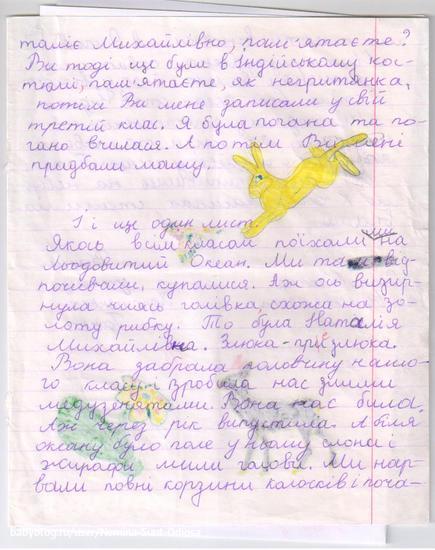 таліє Михайлівно, пам'ятаєте?
Ви тоді ще були в Індійському кос-
тюмі, пам'ятаєте, як негритянка,
потім Ви мене записали у свій
третій клас. Я була погана та по-
гано вчилася. А потім Ви мені
придбали мишу.
І і ще один лист.
Якось всим класам поїхали на
Льодовитий Океан. Ми там від
почевали, купалися. Аж ось визир-
нула чиясь голівка, схожа на зо-
лоту рибку. То була Наталія
Михайлівна. Злюка-призлюка.
Вона забрала половчину нашо-
го класу і зробила нас злими
медузенятами. Вона нас била.
Аж через рік випустила. А біля
океану було поле у ньому слонсі і
жирафи мили голови. Ми нар-
вали повні корзини колосків і поча-